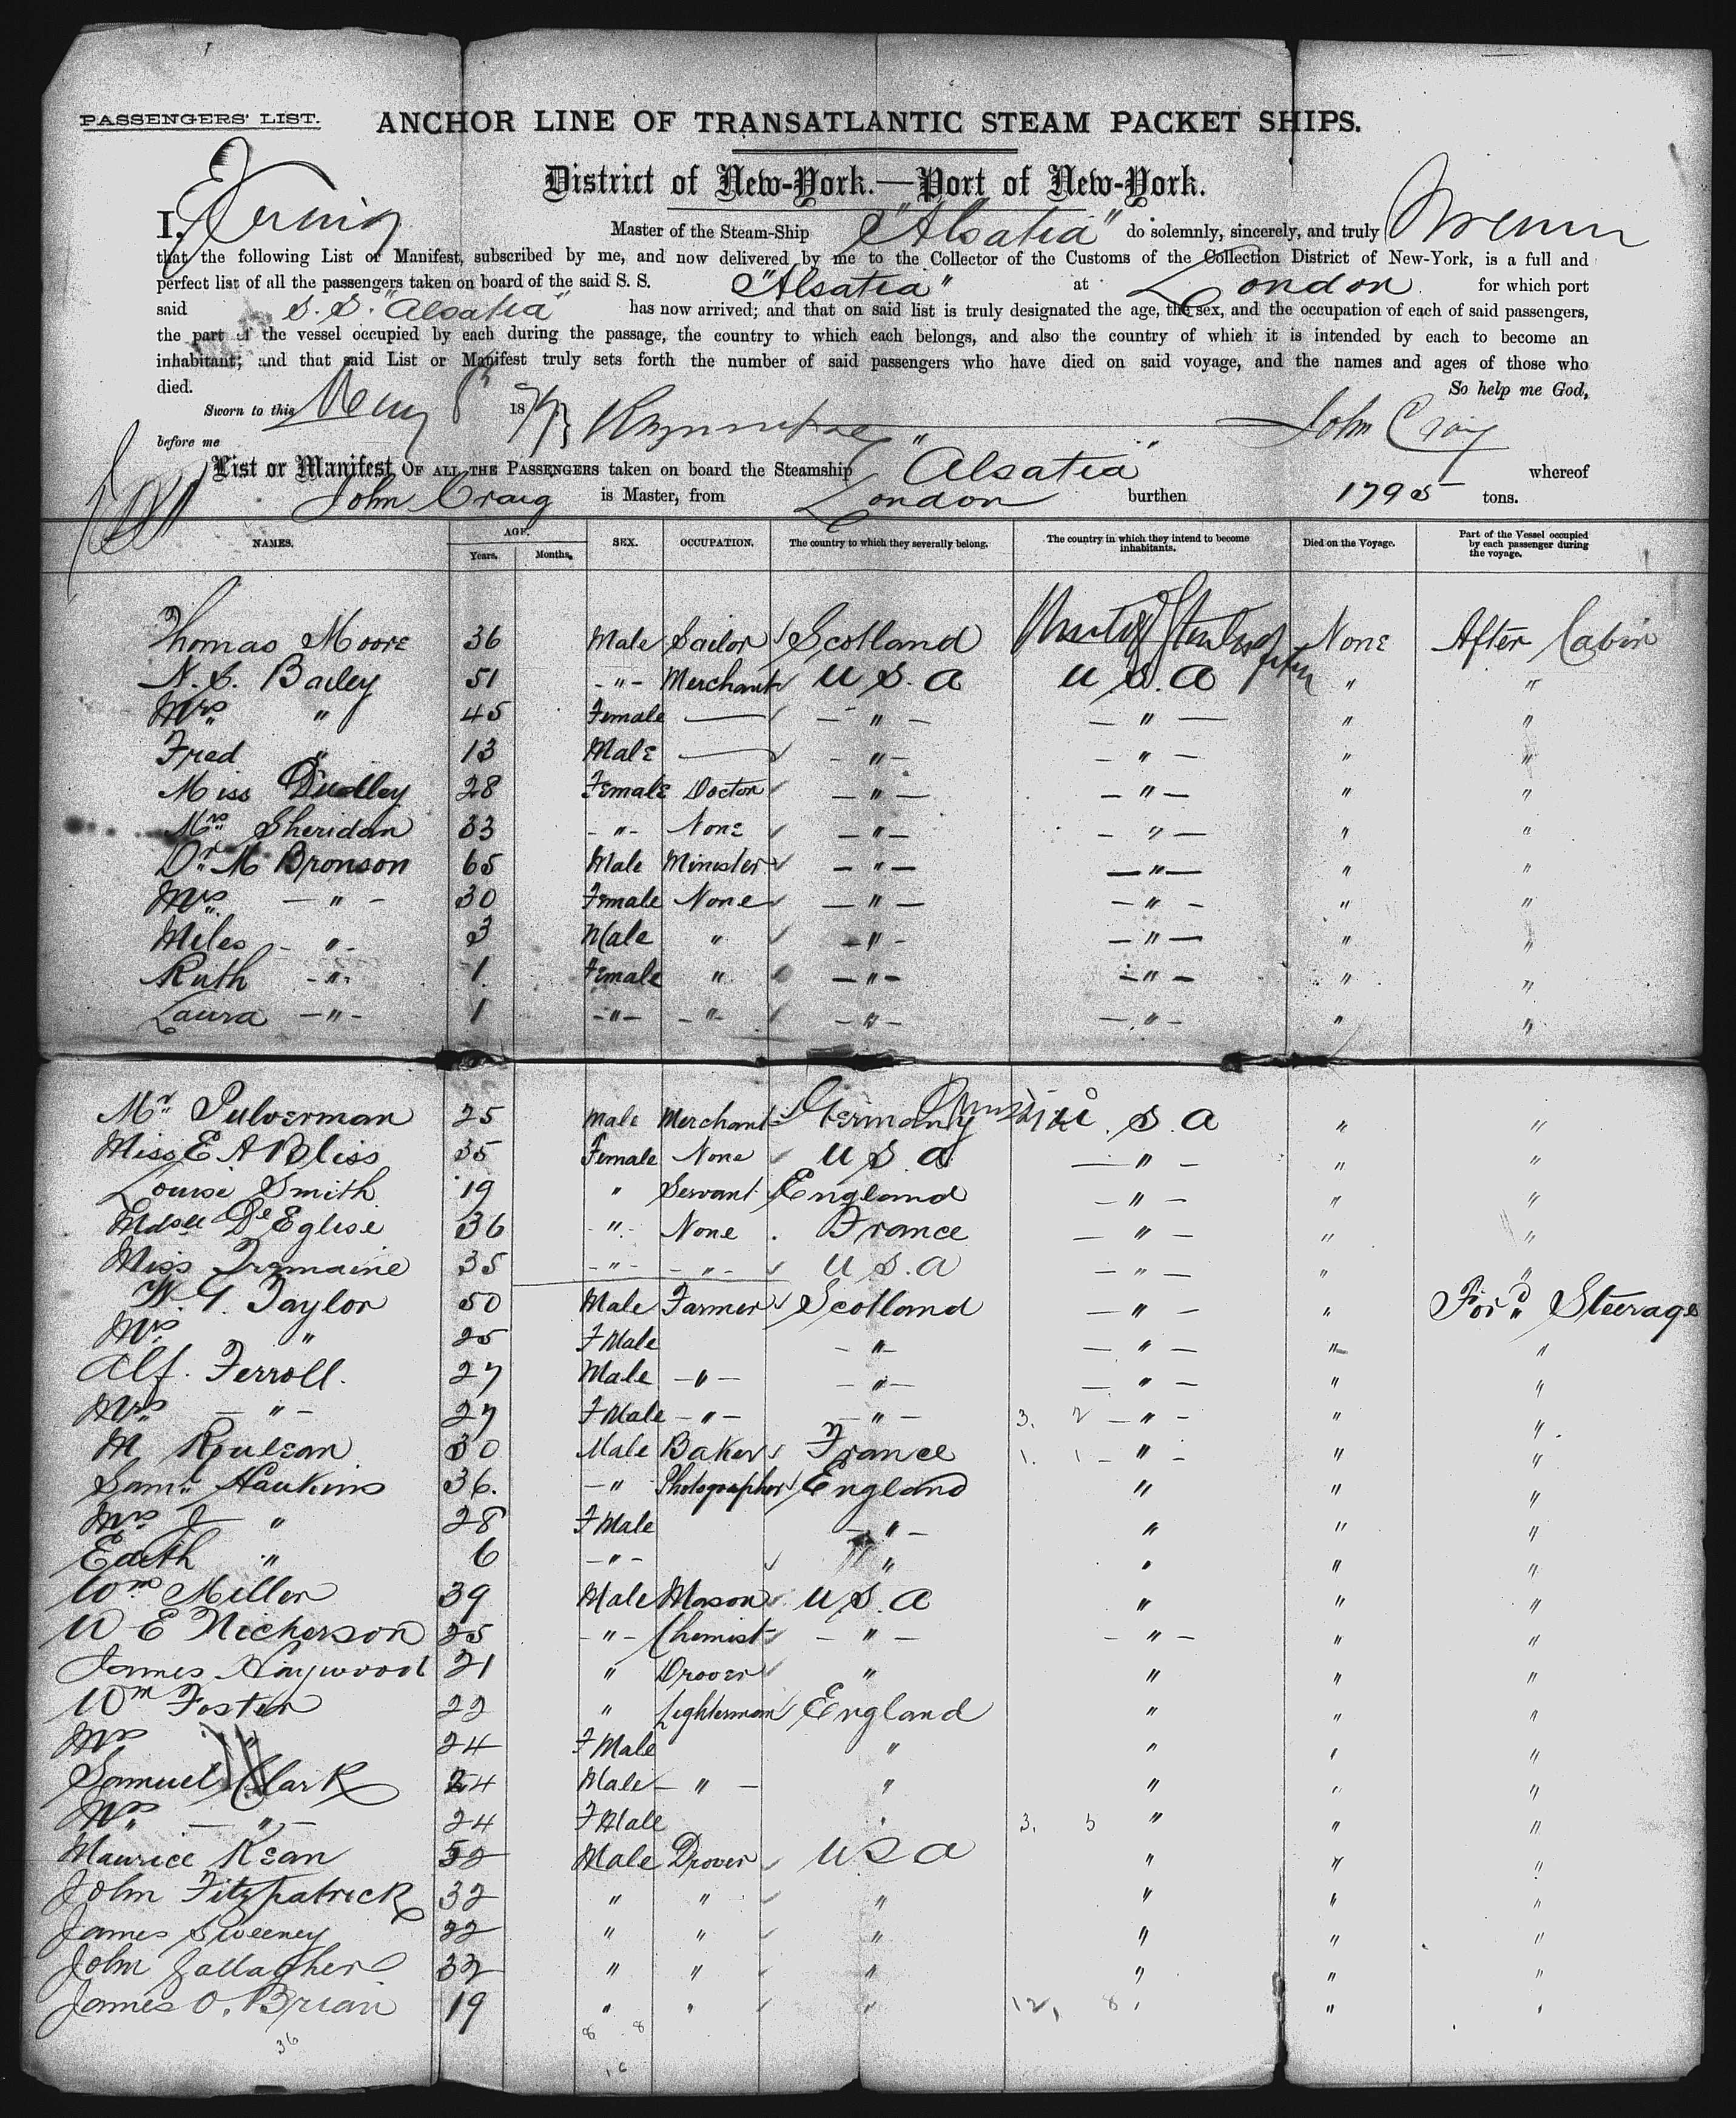 PASSENGERS' LIST.
ANCHOR LINE OF TRANSATLANTIC STEAM PACKET SHIPS.
District of New-York.—Port of New-York.
I, Master of the Steam-Ship "Alsatia" do solemnly, sincerely, and truly
that the following List or Manifest, subscribed by me, and now delivered by me to the Collector of the Customs of the Collection District of New-York, is a full and
perfect list of all the passengers taken on board of the said S. S. "Alsatia" at London for which port
said S.S. "Alsatia" has now arrived; and that on said list is truly designated the age, the sex, and the occupation of each of said passengers,
the part of the vessel occupied by each during the passage, the country to which each belongs, and also the country of which it is intended by each to become an
inhabitant; and that said List or Manifest truly sets forth the number of said passengers who have died on said voyage, and the names and ages of those who
died. So help me God,
Sworn to this 18 John Craig
before me
List or Manifest OF ALL THE PASSENGERS taken on board the Steamship "Alsatia" whereof
John Craig is Master, from London burthen 1795 tons.
NAMES. AGE. Years. Months. SEX. OCCUPATION. The country to which they severally belong. The country in which they intend to become inhabitants. Died on the Voyage. Part of the Vessel occupied by each passenger during the voyage.
Thomas Moore 36 Male Sailor Scotland None After Cabin
N. S. Bailey 51 -"- Merchant U S. A U S. A " "
Mrs " 45 Female — — " — — " — " "
Fred " 13 Male — - " - - " - " "
Miss Dudley 28 Female Doctor — " — — " — " "
Mrs Sheridan 33 - " - None — " — - " — " "
Dr M Bronson 65 Male Minister - " - — " — " "
Mrs — " - 30 Female None — " — — " - " "
Miles - " - 3 Male " - " - — " — " "
Ruth - " - 1 Female " — " — - " - " "
Laura — " - 1 - " - - " - — " - — " - " "
Mr Pulverman 25 Male Merchant Germany U. S. A " "
Miss E A Bliss 35 Female None U S. A — " - " "
Louise Smith 19 " Servant England — " - " "
Mdsll De Eglise 36 - " - None France — " - " "
Miss Tremaine 35 - " - - " - U S. A — " — " "
W. G. Taylor 50 Male Farmer Scotland — " - " For'd Steerage
Mrs " 25 F Male - " - — " - " "
Alf. Ferroll. 27 Male - " - - " - — " - " "
Mrs — " - 27 F Male - " - — " - 3. 2 — " - " "
M Roulean 30 Male Baker France 1. 1 - " - " "
Saml Haukins 36. - " Photographer England " " "
Mrs J " 28 F Male - " - " " "
Edith " 6 - " - " " " "
Wm Miller 39 Male Mason U S. A " " "
W E Nickerson 25 - " - Chemist - " - - " - " "
James Haywood 21 " Drover " " " "
Wm Foster 22 " Lighterman England " " "
Mrs " 24 F Male " " " "
Samuel Clark 24 Male - " - " " " "
Mrs — " - 24 F Male " 3. 5 " " "
Maurice Kean 52 Male Drover U S A " " "
John Fitzpatrick 32 " " " " " "
James Sweeney 22 " " " " " "
John Gallagher 32 " " " " " "
James O. Brian 19 " " " 12, 8 " " "
36 8 8
16